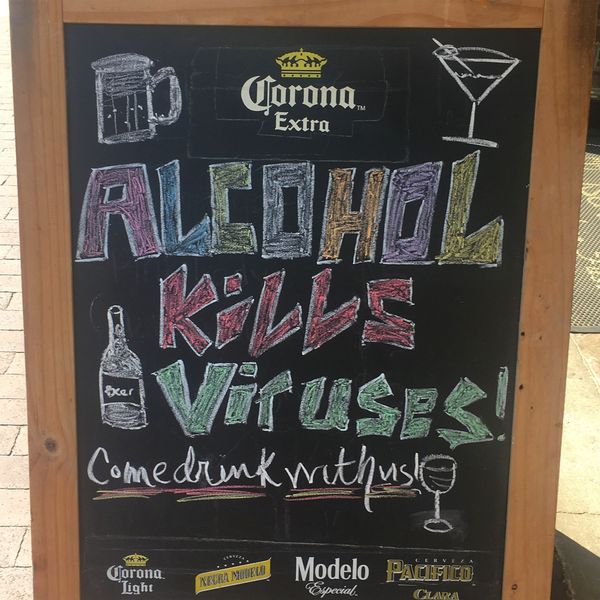 Corona™
Extra
ALCOHOL
KiLLS
ViRUSES!
Come drink with us!
Corona
Light
CERVEZA
NEGRA MODELO
Modelo
Especial
CERVEZA
PACIFICO
CLARA